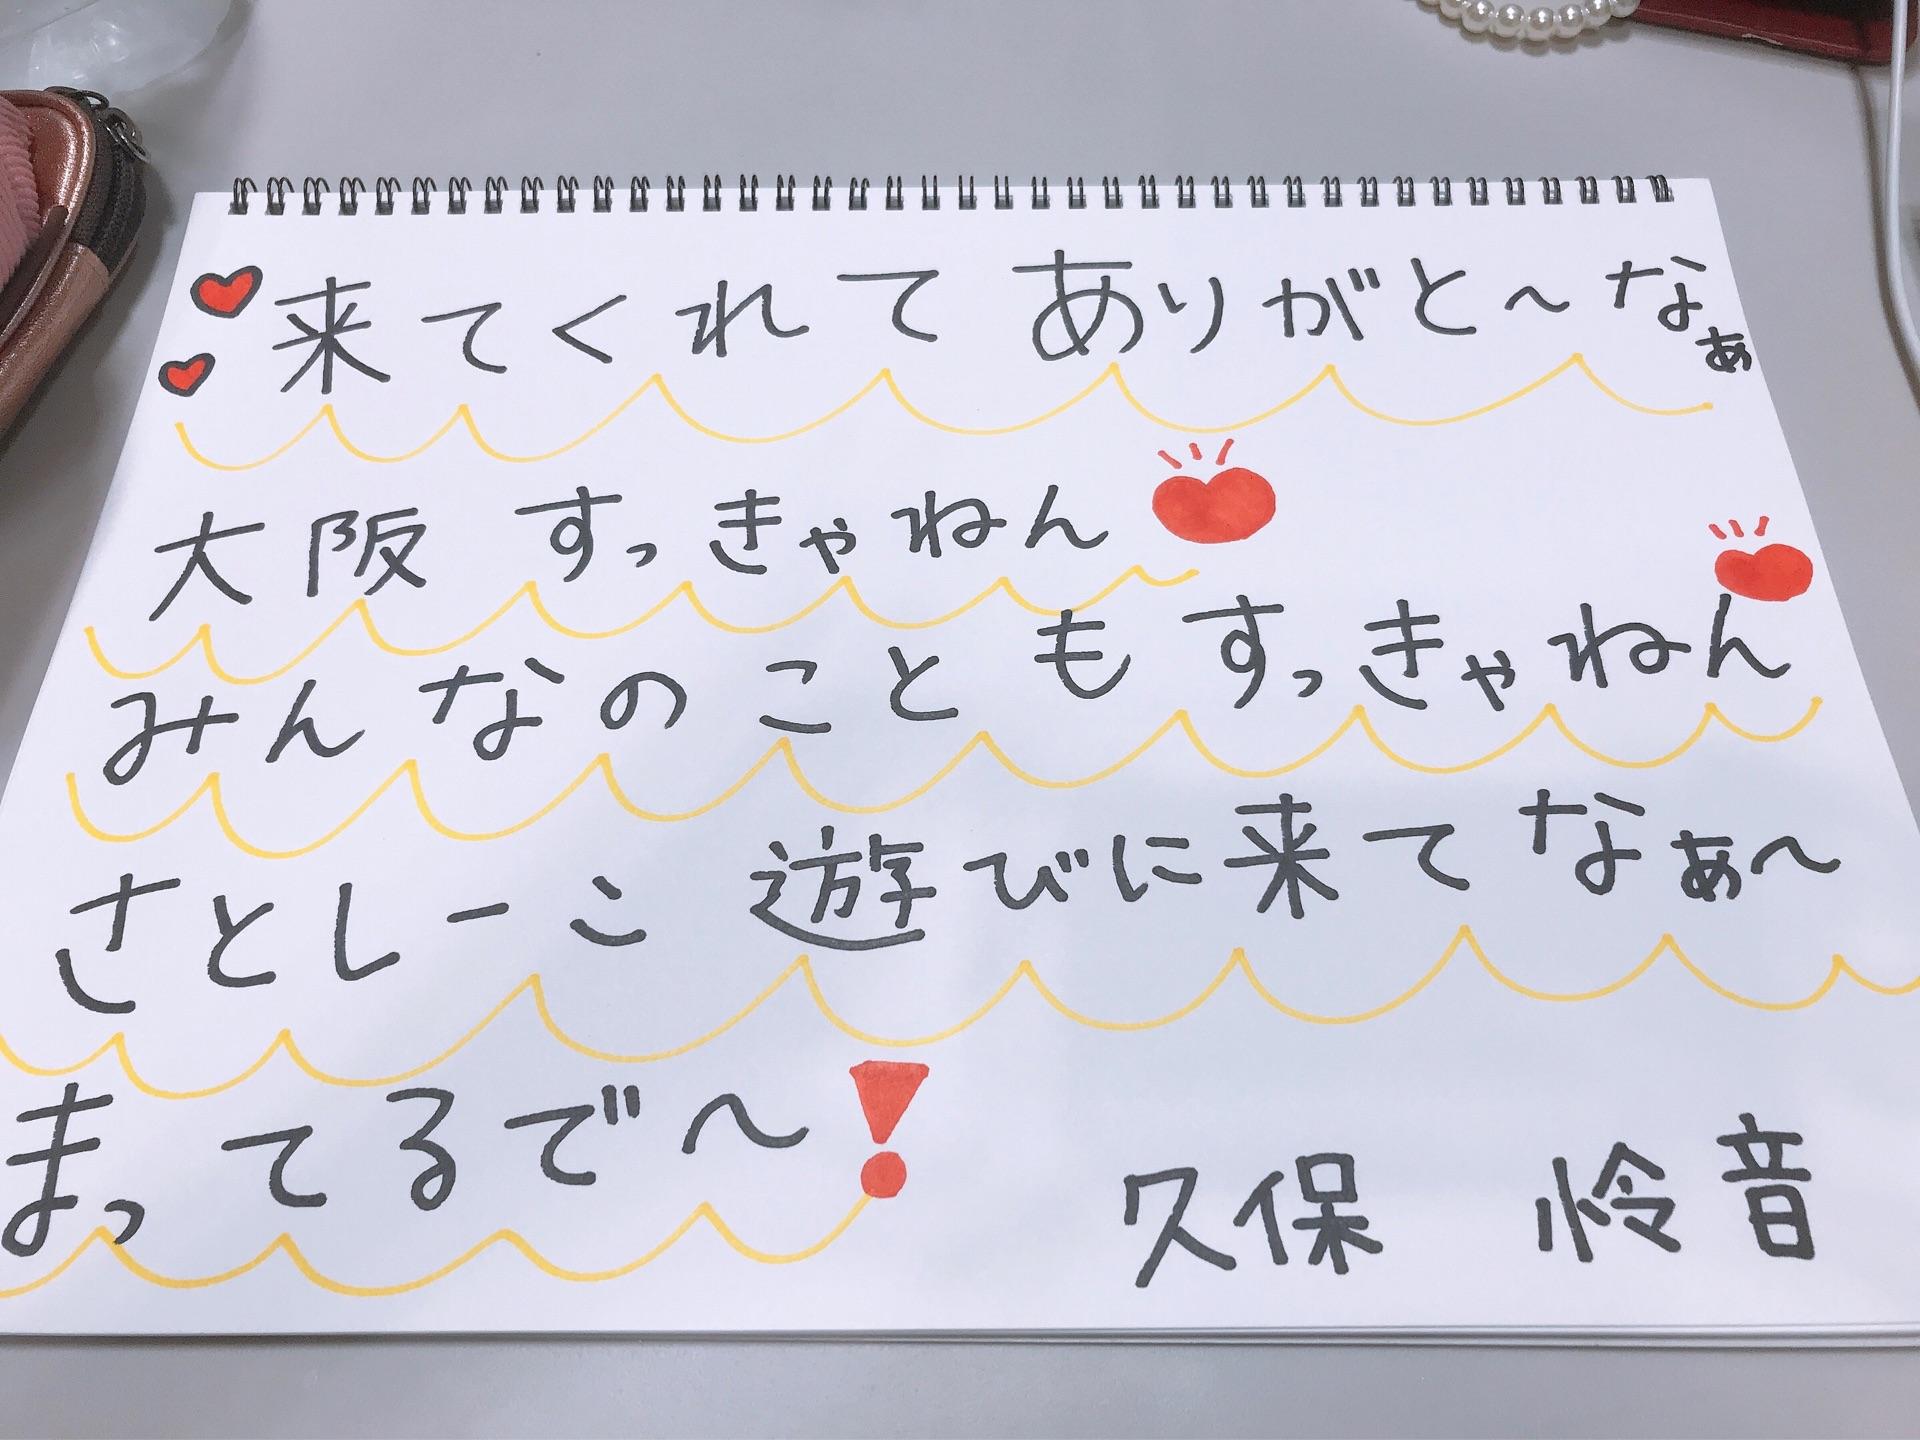 来てくれてありがと～なぁ
大阪すっきゃねん
みんなのこともすっきゃねん
さとしーこ遊びに来てなぁ～
まってるで～！
久保 怜音